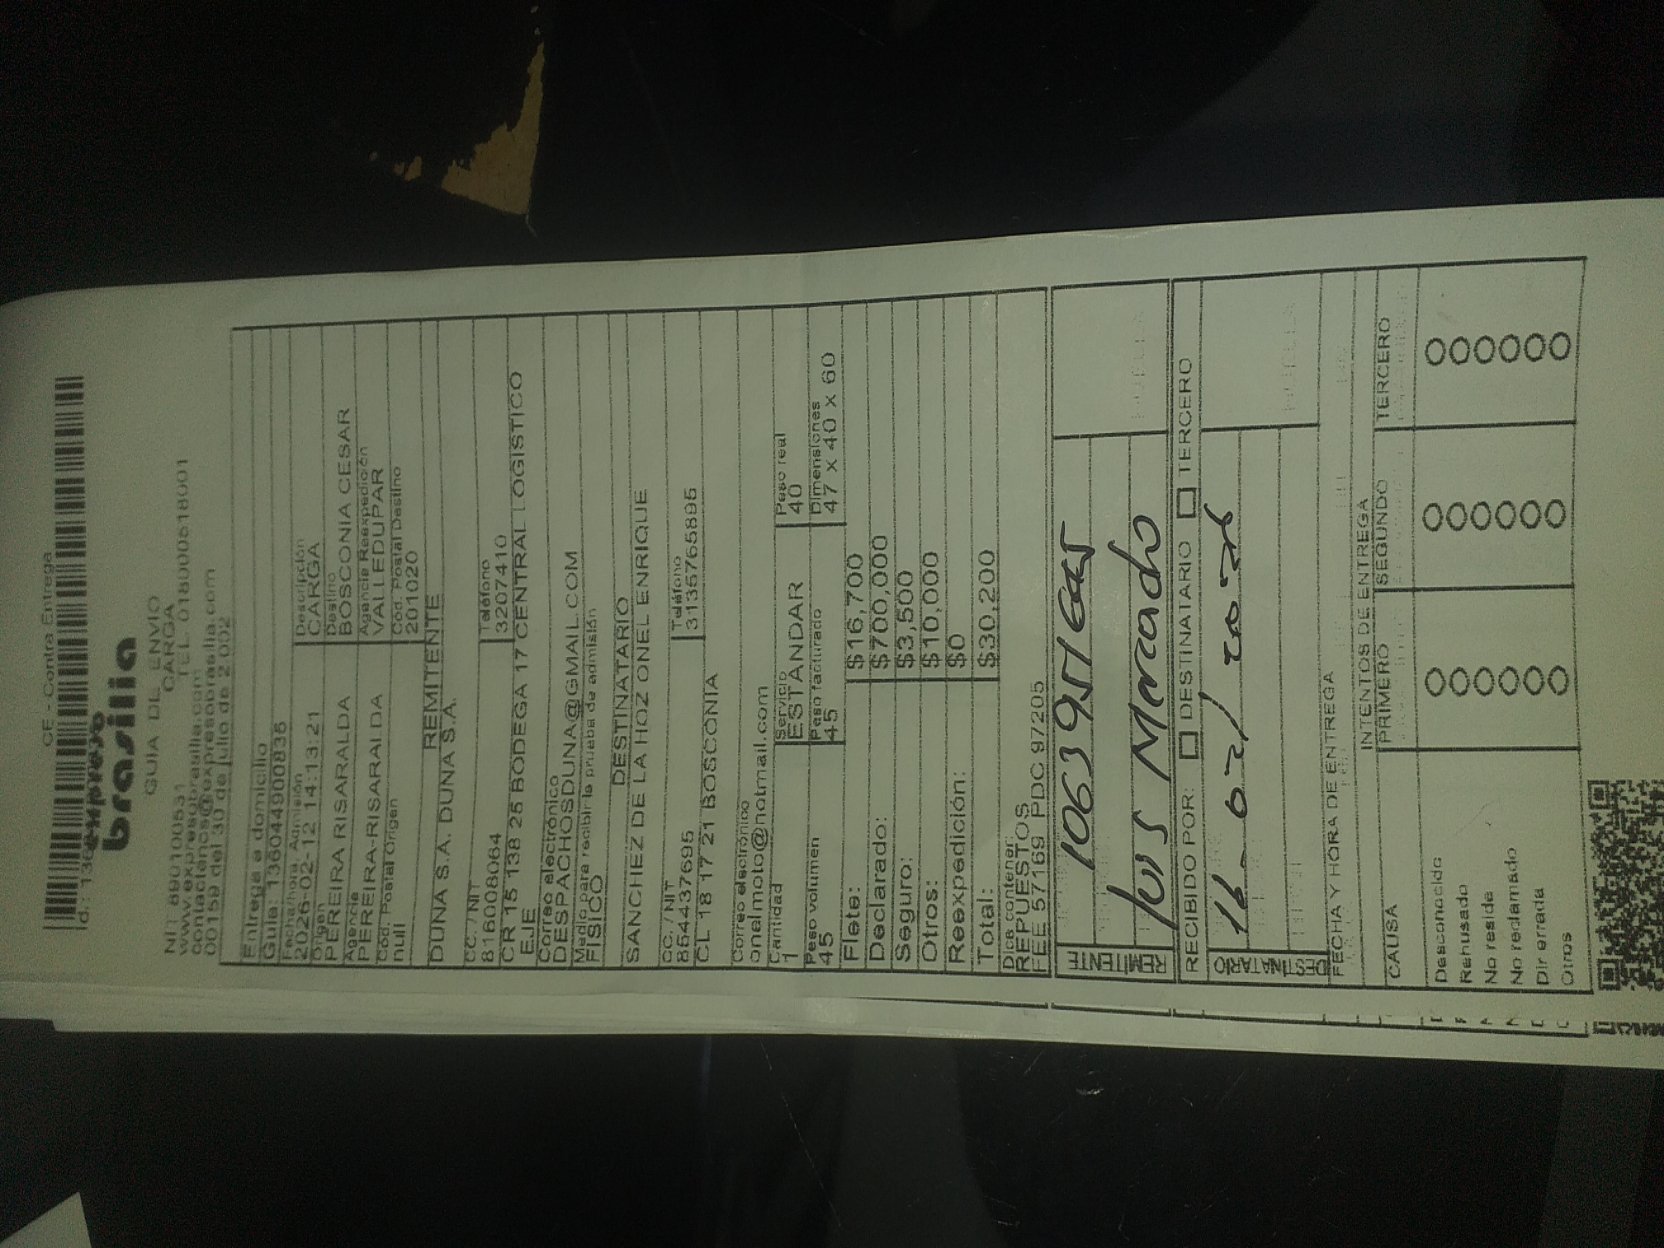 CE - Contra Entrega
expreso
brasilia
GUIA DE ENVIO
CARGA
NIT: 890100531 TEL. 018000518001
www.expresobrasilia.com
contactenos@expresobrasilia.com
00159 del 30 de julio de 2002
Entrega a domicilio
Guia: 13604490083
Fecha/hora Admisión Descripción
2026-02-12 14:13:21 CARGA
Origen Destino
PEREIRA RISARALDA BOSCONIA CESAR
Agencia Agencia Reexpedición
PEREIRA-RISARALDA VALLEDUPAR
Cód. Postal Origen Cód. Postal Destino
null 201020
REMITENTE
DUNA S.A. DUNA S.A.
CC. / NIT Teléfono
816008064 3207410
CR 15 138 25 BODEGA 17 CENTRAL LOGISTICO
EJE
Correo electrónico
DESPACHOSDUNA@GMAIL.COM
Medio para recibir la prueba de admisión
FISICO
DESTINATARIO
SANCHEZ DE LA HOZ ONEL ENRIQUE
CC. / NIT Teléfono
864437695 3135765895
CL 18 17 21 BOSCONIA
Correo electrónico
onelmoto@hotmail.com
Cantidad Servicio Peso real
1 ESTANDAR 40
Peso volumen Peso facturado Dimensiones
45 45 47 x 40 x 60
Flete: $16,700
Declarado: $700,000
Seguro: $3,500
Otros: $10,000
Reexpedición: $0
Total: $30,200
Dice contener:
REPUESTOS
FEE 57169 PDC 97205
REMITENTE
Luis Mercado
RECIBIDO POR: DESTINATARIO TERCERO
DESTINATARIO
16-02/2026
FECHA Y HORA DE ENTREGA
INTENTOS DE ENTREGA
CAUSA PRIMERO SEGUNDO TERCERO
Desconocido
Rehusado
No reside
No reclamado
Dir errada
Otros